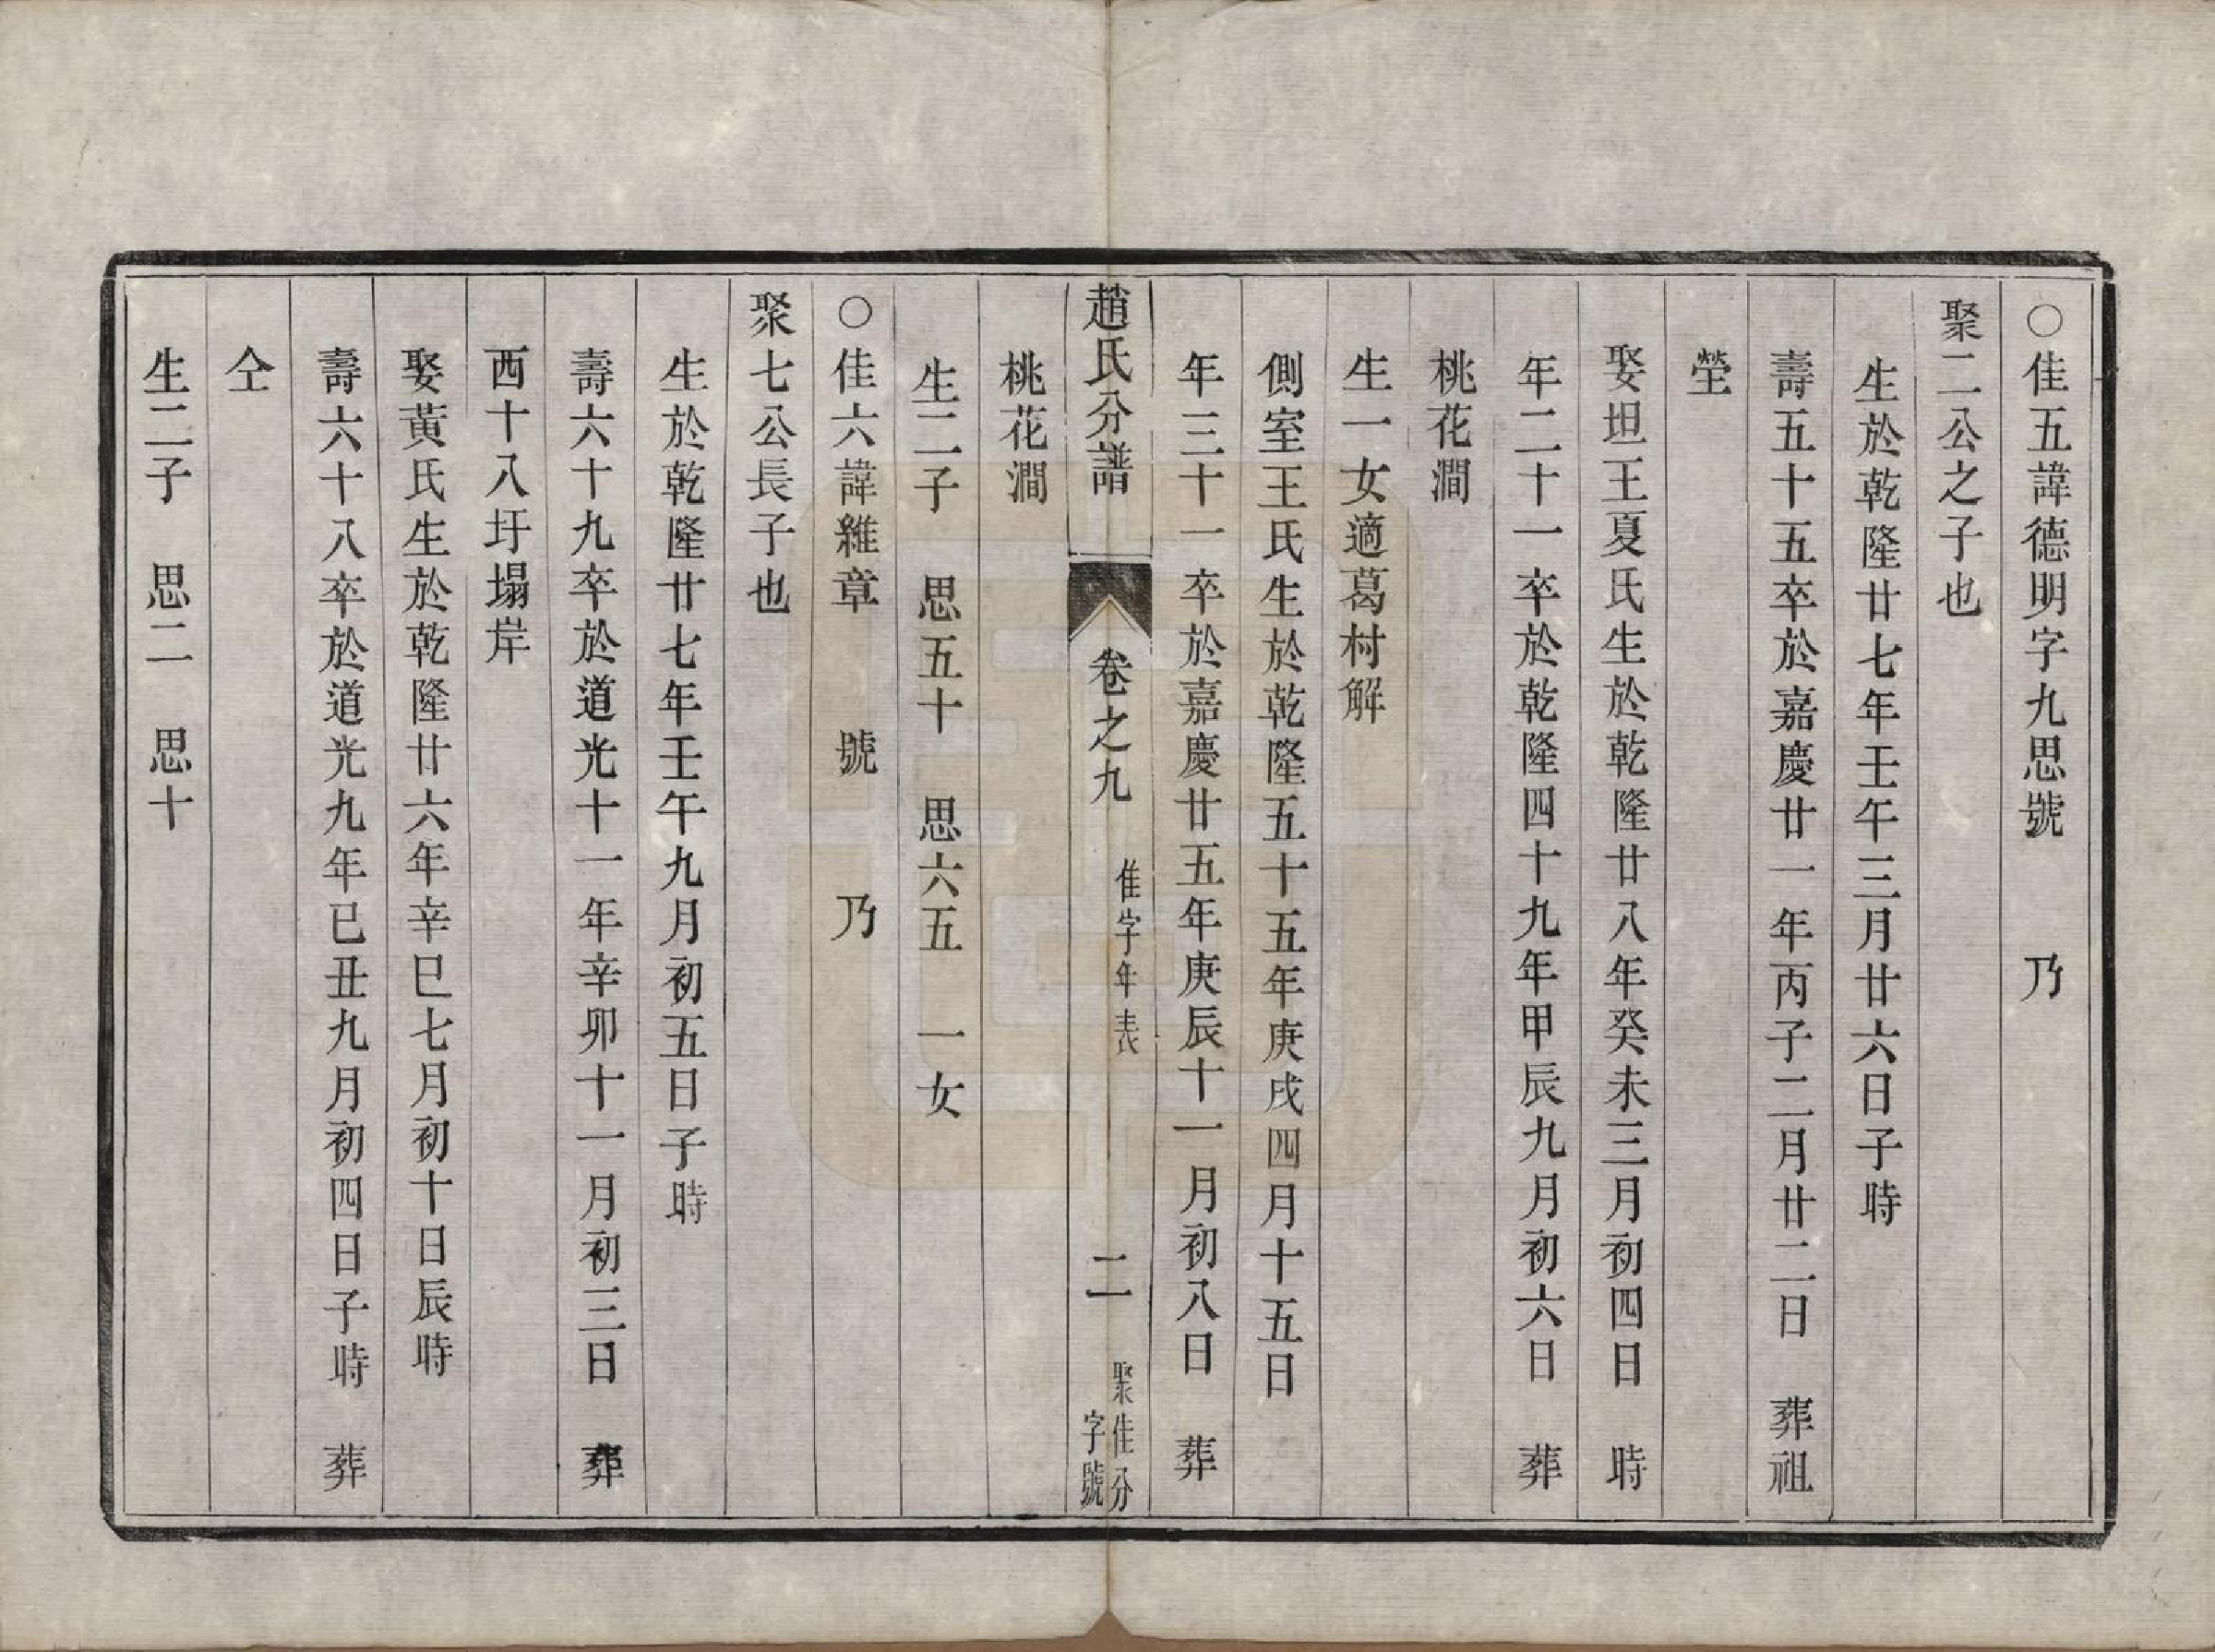 ○佳五諱德明字九思號　　乃
聚二公之子也
生於乾隆廿七年壬午三月廿六日子時
壽五十五卒於嘉慶廿一年丙子二月廿二日　葬祖
塋
娶坦王夏氏生於乾隆廿八年癸未三月初四日　時
年二十一卒於乾隆四十九年甲辰九月初六日　葬
桃花澗
生一女適葛村解
側室王氏生於乾隆五十五年庚戌四月十五日
年三十一卒於嘉慶廿五年庚辰十一月初八日　葬
趙氏分譜　卷之九　佳字年表　二　聚佳分字號
桃花澗
生二子　思五十　思六五　一女
○佳六諱維章　　號　　乃
聚七公長子也
生於乾隆廿七年壬午九月初五日子時
壽六十九卒於道光十一年辛卯十一月初三日　葬
西十八圩塌岸
娶黃氏生於乾隆廿六年辛巳七月初十日辰時
壽六十八卒於道光九年已丑九月初四日子時　葬
仝
生二子　思二　思十